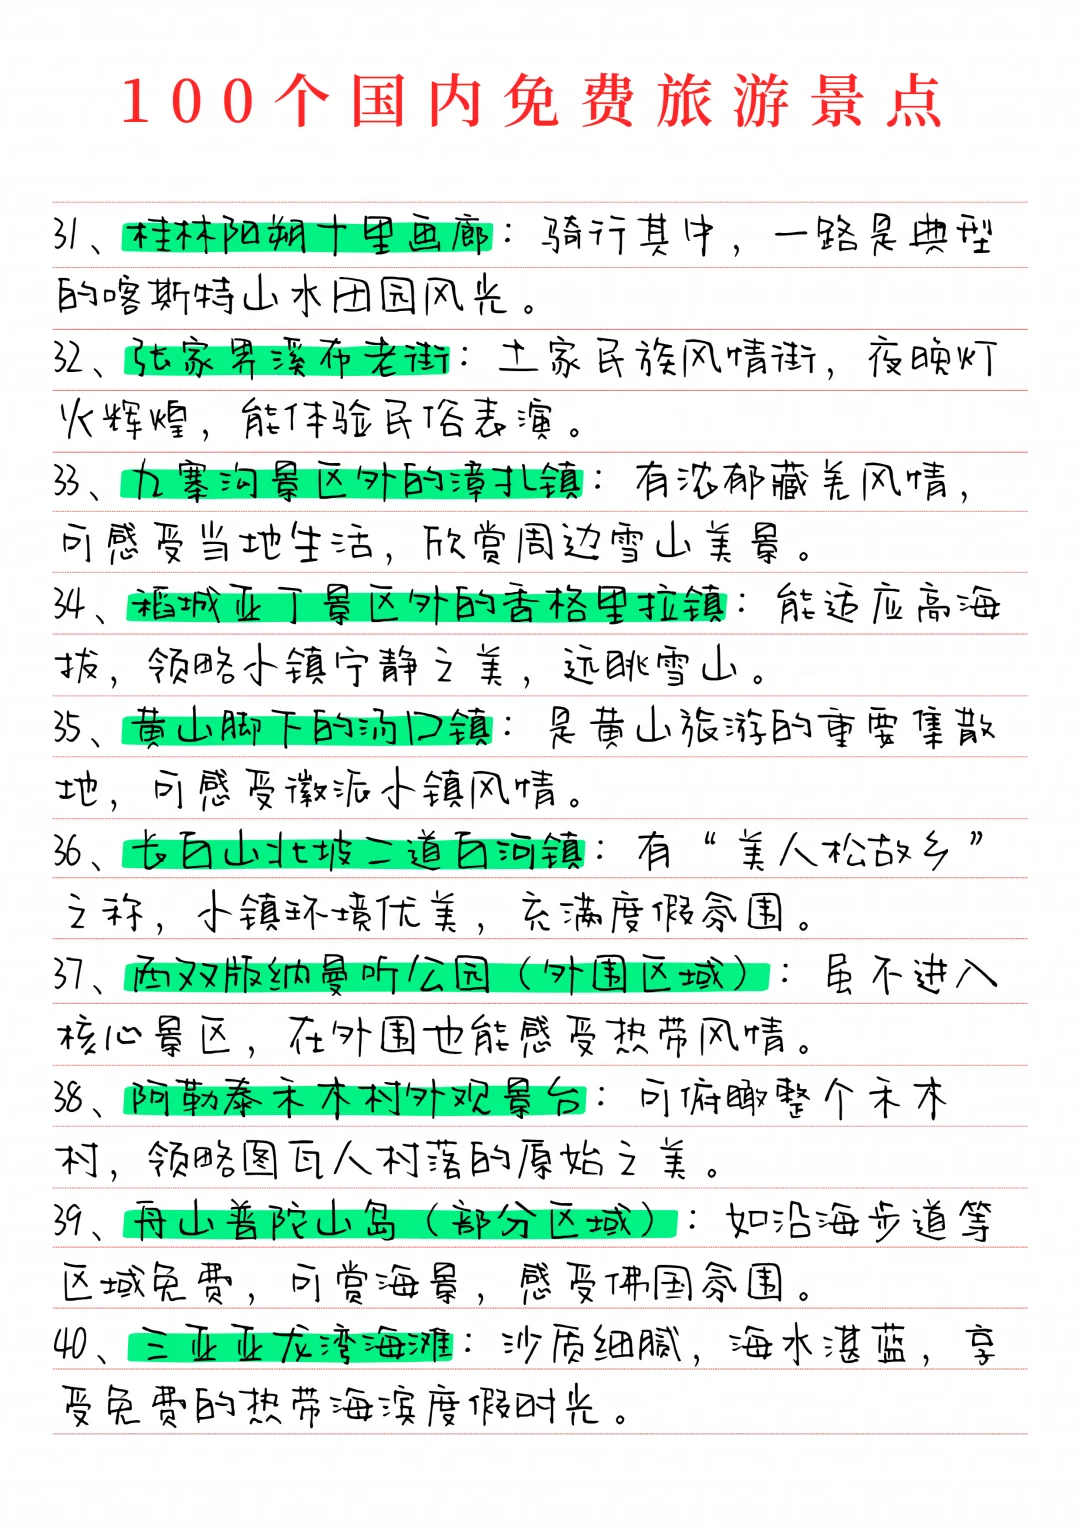 100个国内免费旅游景点
31、桂林阳朔十里画廊：骑行其中，一路是典型
的喀斯特山水田园风光。
32、张家界溪布老街：土家民族风情街，夜晚灯
火辉煌，能体验民俗表演。
33、九寨沟景区外的漳扎镇：有浓郁藏羌风情，
可感受当地生活，欣赏周边雪山美景。
34、稻城亚丁景区外的香格里拉镇：能适应高海
拔，领略小镇宁静之美，远眺雪山。
35、黄山脚下的汤口镇：是黄山旅游的重要集散
地，可感受徽派小镇风情。
36、长白山北坡二道白河镇：有“美人松故乡”
之称，小镇环境优美，充满度假氛围。
37、西双版纳曼听公园（外围区域）：虽不进入
核心景区，在外围也能感受热带风情。
38、阿勒泰禾木村外观景台：可俯瞰整个禾木
村，领略图瓦人村落的原始之美。
39、舟山普陀山岛（部分区域）：如沿海步道等
区域免费，可赏海景，感受佛国氛围。
40、三亚亚龙湾海滩：沙质细腻，海水湛蓝，享
受免费的热带海滨度假时光。